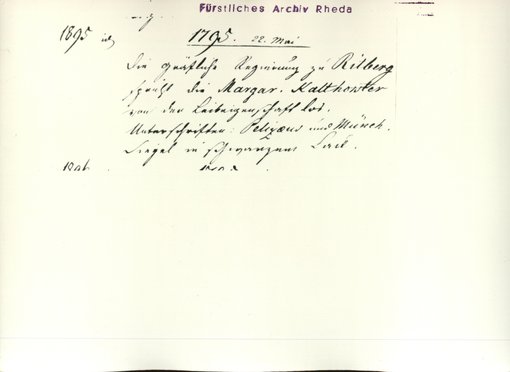 Fürstliches Archiv Rheda
1895
1795. 22. Mai
Die gräfliche Regierung zu Ritberg
spricht die Margar. Kalthowter
von der Leibeigenschaft los.
Unterschriften: Pelizaus und Münch.
Siegel in schwarzem Lack.
1896